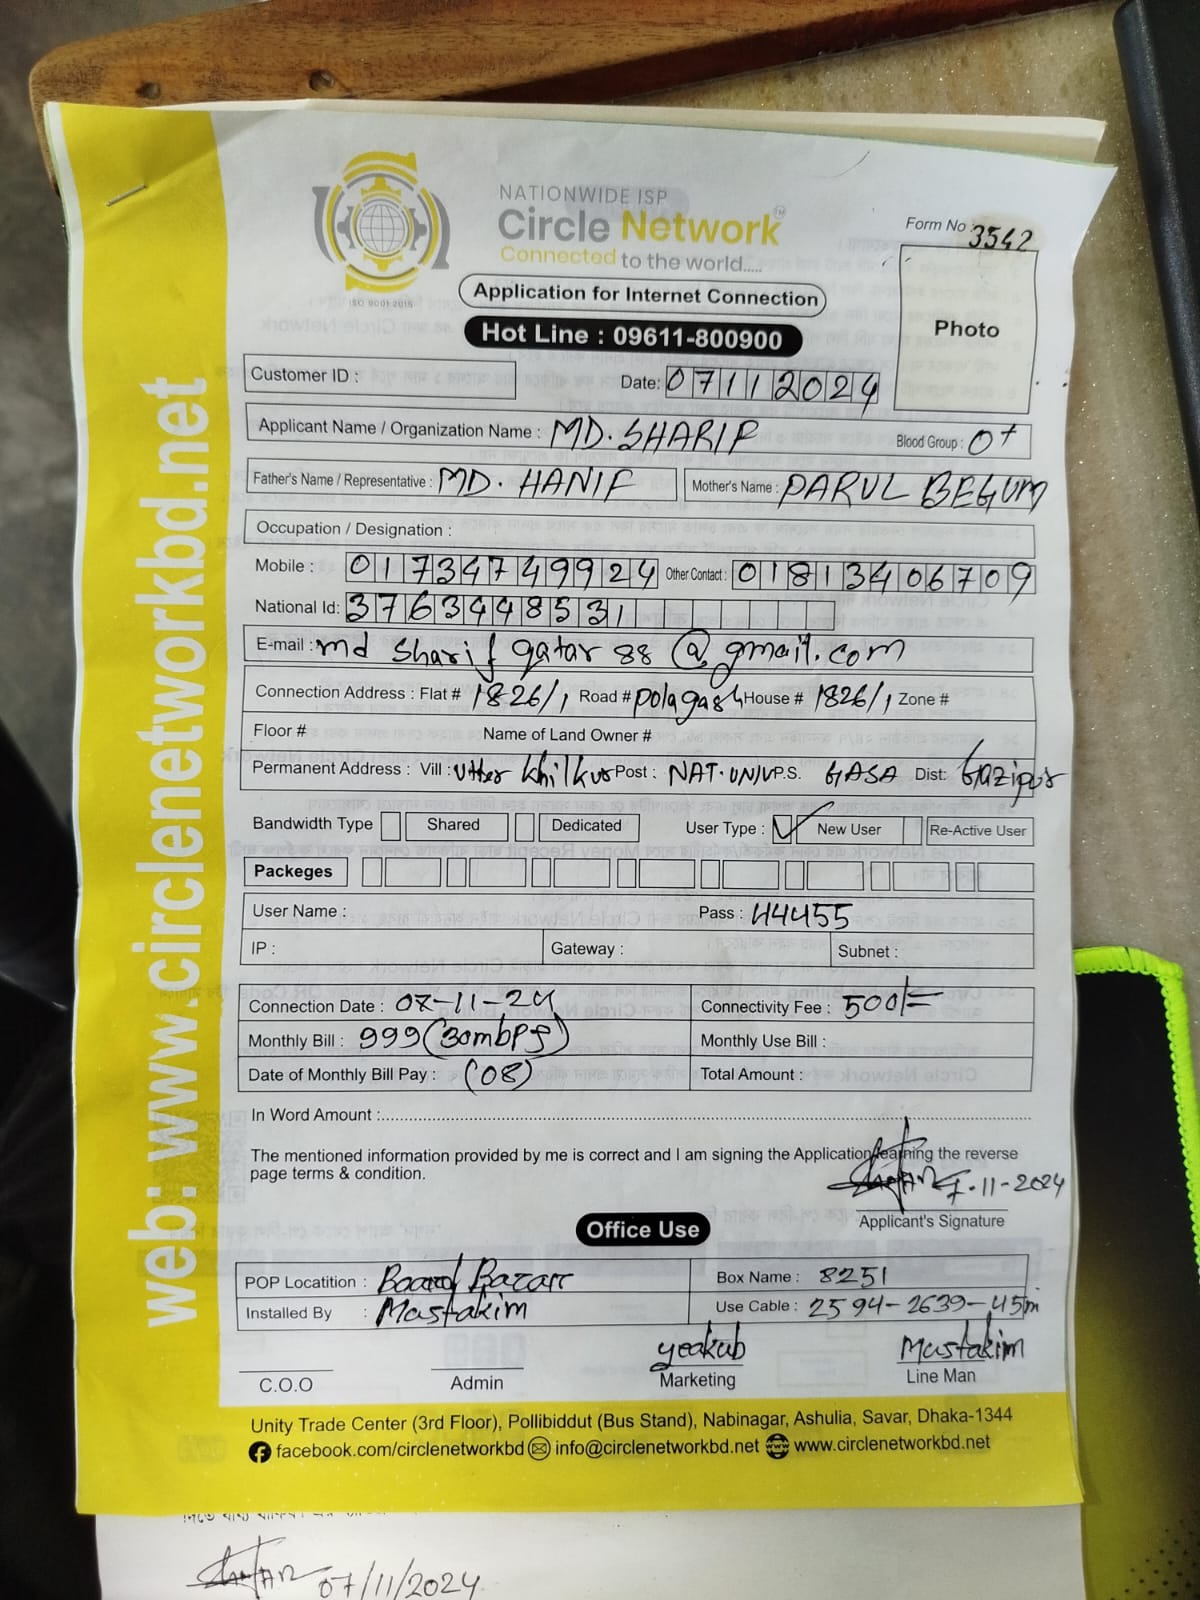 NATIONWIDE ISP
Circle Network™
Connected to the world.....
ISO 9001:2015
Form No : 3542
Application for Internet Connection
Hot Line : 09611-800900
Photo
Customer ID :
Date: 07112024
Applicant Name / Organization Name : MD. SHARIF Blood Group : O+
Father's Name / Representative : MD. HANIF Mother's Name : PARUL BEGUM
Occupation / Designation :
Mobile : 01734749924 Other Contact : 01813406709
National Id: 3763448531
E-mail : md sharif qatar 88 @ gmail.com
Connection Address : Flat # 1826/1 Road # polagash House # 1826/1 Zone #
Floor # Name of Land Owner #
Permanent Address : Vill : Utter khilkur Post : NAT. UNIV P.S. GASA Dist: Gazipur
Bandwidth Type Shared Dedicated User Type : New User Re-Active User
Packeges
User Name : Pass : 44455
IP : Gateway : Subnet :
Connection Date : 08-11-24 Connectivity Fee : 500/=
Monthly Bill : 999 (30mbps) Monthly Use Bill :
Date of Monthly Bill Pay : (08) Total Amount :
In Word Amount :
The mentioned information provided by me is correct and I am signing the Application learning the reverse
page terms & condition.
7-11-2024
Applicant's Signature
Office Use
POP Locatition : Board Bazar Box Name : 8251
Installed By : Mastakim Use Cable : 2594-2639-45m
yeakub Mastakim
C.O.O Admin Marketing Line Man
Unity Trade Center (3rd Floor), Pollibiddut (Bus Stand), Nabinagar, Ashulia, Savar, Dhaka-1344
facebook.com/circlenetworkbd info@circlenetworkbd.net www.circlenetworkbd.net
web: www.circlenetworkbd.net
07/11/2024